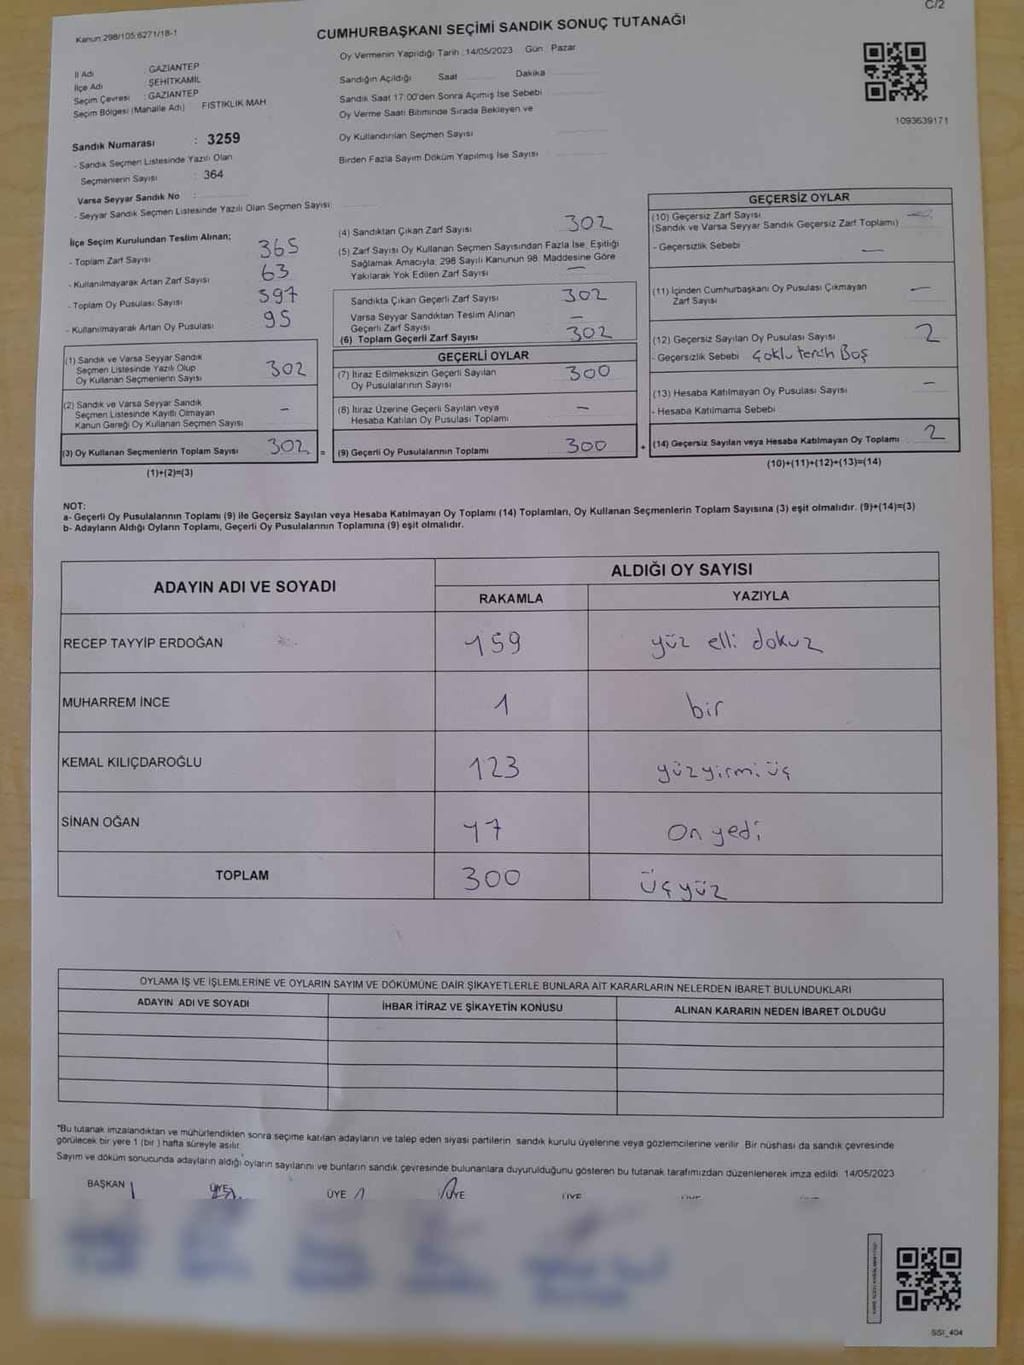 C/2
Kanun:298/105;6271/18-1
CUMHURBAŞKANI SEÇİMİ SANDIK SONUÇ TUTANAĞI
Oy Vermenin Yapıldığı Tarih :14/05/2023 Gün : Pazar
İl Adı : GAZİANTEP
İlçe Adı : ŞEHİTKAMİL
Seçim Çevresi : GAZİANTEP
Seçim Bölgesi (Mahalle Adı) FISTIKLIK MAH
Sandığın Açıldığı Saat Dakika
Sandık Saat 17:00'den Sonra Açımış İse Sebebi
Oy Verme Saati Bitiminde Sırada Bekleyen ve
Oy Kullandırılan Seçmen Sayısı
Birden Fazla Sayım Döküm Yapılmış İse Sayısı
1093639171
Sandık Numarası : 3259
- Sandık Seçmen Listesinde Yazılı Olan
Seçmenlerin Sayısı : 364
Varsa Seyyar Sandık No :
- Seyyar Sandık Seçmen Listesinde Yazılı Olan Seçmen Sayısı:
İlçe Seçim Kurulundan Teslim Alınan;
- Toplam Zarf Sayısı 365
- Kullanılmayarak Artan Zarf Sayısı 63
- Toplam Oy Pusulası Sayısı 397
- Kullanılmayarak Artan Oy Pusulası 95
(1) Sandık ve Varsa Seyyar Sandık
Seçmen Listesinde Yazılı Olup
Oy Kullanan Seçmenlerin Sayısı 302
(2) Sandık ve Varsa Seyyar Sandık
Seçmen Listesinde Kayıtlı Olmayan
Kanun Gereği Oy Kullanan Seçmen Sayısı –
(3) Oy Kullanan Seçmenlerin Toplam Sayısı 302 =
(1)+(2)=(3)
(4) Sandıktan Çıkan Zarf Sayısı 302
(5) Zarf Sayısı Oy Kullanan Seçmen Sayısından Fazla İse, Eşitliği
Sağlamak Amacıyla; 298 Sayılı Kanunun 98. Maddesine Göre
Yakılarak Yok Edilen Zarf Sayısı –
Sandıkta Çıkan Geçerli Zarf Sayısı 302
Varsa Seyyar Sandıktan Teslim Alınan
Geçerli Zarf Sayısı –
(6) Toplam Geçerli Zarf Sayısı 302
GEÇERLİ OYLAR
(7) İtiraz Edilmeksizin Geçerli Sayılan
Oy Pusulalarının Sayısı 300
(8) İtiraz Üzerine Geçerli Sayılan veya
Hesaba Katılan Oy Pusulası Toplamı –
(9) Geçerli Oy Pusulalarının Toplamı 300 +
GEÇERSİZ OYLAR
(10) Geçersiz Zarf Sayısı
(Sandık ve Varsa Seyyar Sandık Geçersiz Zarf Toplamı)
- Geçersizlik Sebebi –
(11) İçinden Cumhurbaşkanı Oy Pusulası Çıkmayan
Zarf Sayısı –
(12) Geçersiz Sayılan Oy Pusulası Sayısı 2
- Geçersizlik Sebebi Çoklu tercih Boş
(13) Hesaba Katılmayan Oy Pusulası Sayısı –
- Hesaba Katılmama Sebebi
(14) Geçersiz Sayılan veya Hesaba Katılmayan Oy Toplamı 2
(10)+(11)+(12)+(13)=(14)
NOT:
a- Geçerli Oy Pusulalarının Toplamı (9) ile Geçersiz Sayılan veya Hesaba Katılmayan Oy Toplamı (14) Toplamları, Oy Kullanan Seçmenlerin Toplam Sayısına (3) eşit olmalıdır. (9)+(14)=(3)
b- Adayların Aldığı Oyların Toplamı, Geçerli Oy Pusulalarının Toplamına (9) eşit olmalıdır.
ADAYIN ADI VE SOYADI
ALDIĞI OY SAYISI
RAKAMLA YAZIYLA
RECEP TAYYİP ERDOĞAN 159 yüz elli dokuz
MUHARREM İNCE 1 bir
KEMAL KILIÇDAROĞLU 123 yüzyirmi üç
SİNAN OĞAN 17 On yedi
TOPLAM 300 üçyüz
OYLAMA İŞ VE İŞLEMLERİNE VE OYLARIN SAYIM VE DÖKÜMÜNE DAİR ŞİKAYETLERLE BUNLARA AİT KARARLARIN NELERDEN İBARET BULUNDUKLARI
ADAYIN ADI VE SOYADI İHBAR İTİRAZ VE ŞİKAYETİN KONUSU ALINAN KARARIN NEDEN İBARET OLDUĞU
"Bu tutanak imzalandıktan ve mühürlendikten sonra seçime katılan adayların ve talep eden siyasi partilerin sandık kurulu üyelerine veya gözlemcilerine verilir. Bir nüshası da sandık çevresinde
görülecek bir yere 1 (bir) hafta süreyle asılır.
Sayım ve döküm sonucunda adayların aldığı oyların sayılarını ve bunların sandık çevresinde bulunanlara duyurulduğunu gösteren bu tutanak tarafımızdan düzenlenerek imza edildi. 14/05/2023
BAŞKAN ÜYE ÜYE ÜYE ÜYE
SSI_404